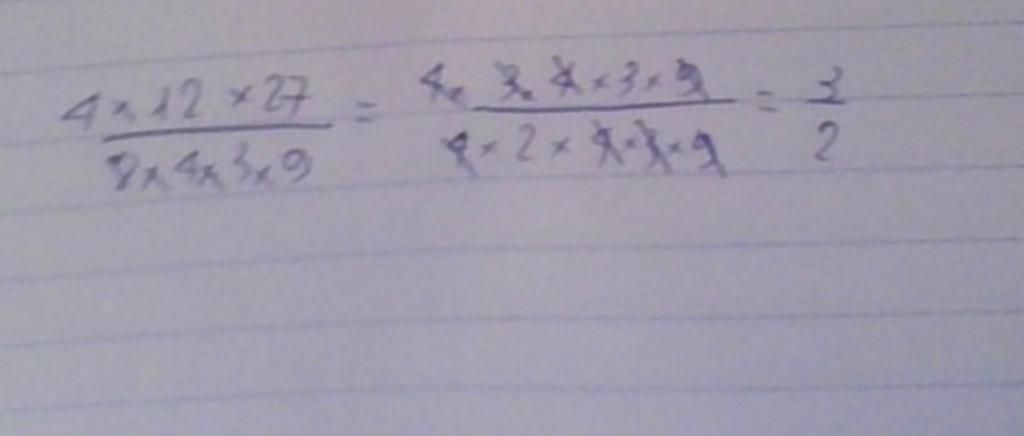 4 × 12 × 27 / 8 × 4 × 3 × 9 = 4 × 3 × 4 × 3 × 9 / 4 × 2 × 4 × 3 × 9 = 3 / 2